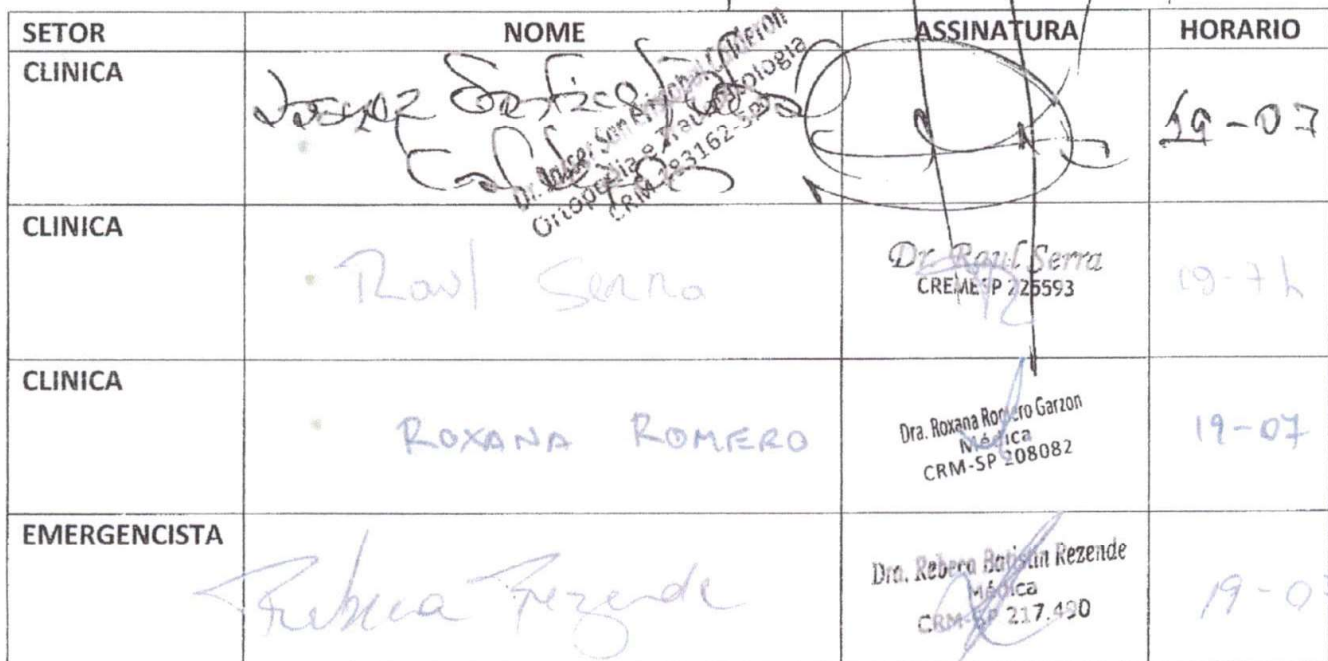 SETOR NOME ASSINATURA HORARIO
CLINICA 19-07
Ortopedia e Traumatologia
CLINICA Raul Serra Dr. Raul Serra 19-7h
CREMESP 225593
CLINICA ROXANA ROMERO Dra. Roxana Romero Garzon 19-07
Médica
CRM-SP 208082
EMERGENCISTA Rebeca Rezende Dra. Rebeca Batistin Rezende 19-0
Médica
CRM-SP 217.490